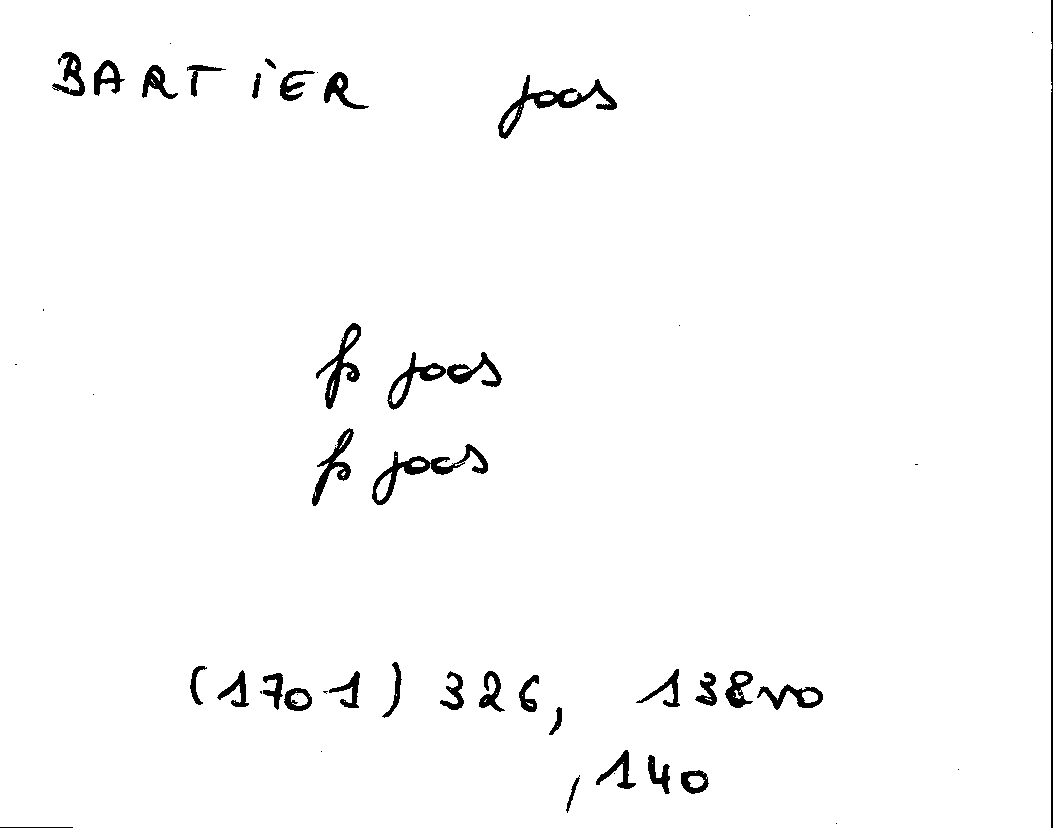 BARTIER joos
fs joos
fs joos
(1701) 326, 138vo
, 140